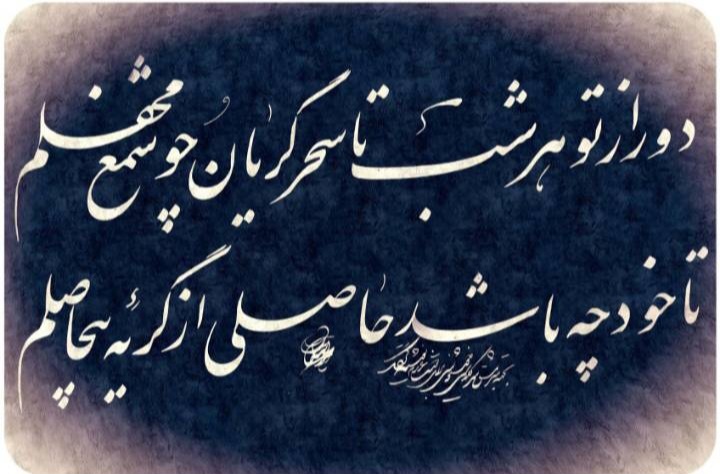 دور از تو هر شب تا سحر گریان چو شمع محفلم
تا خود چه باشد حاصلی از گریه بیحاصلم